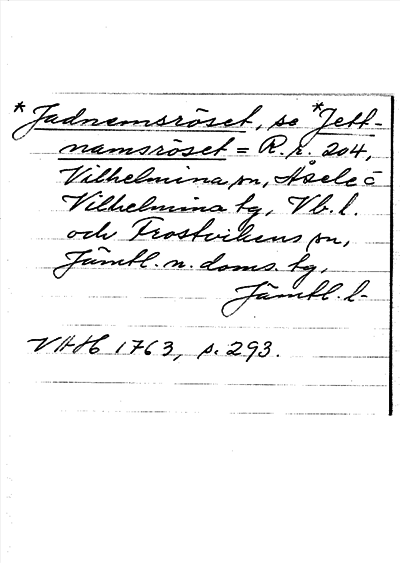 * Jadnemsröset, se * Jett-
namsröset = R.r. 204,
Vilhelmina sn, Åsele o
Vilhelmina tg, Vb. l.
och Frostvikens sn,
Jämtl. n. doms. tg,
Jämtl. l.
VHH 1763, s. 293.